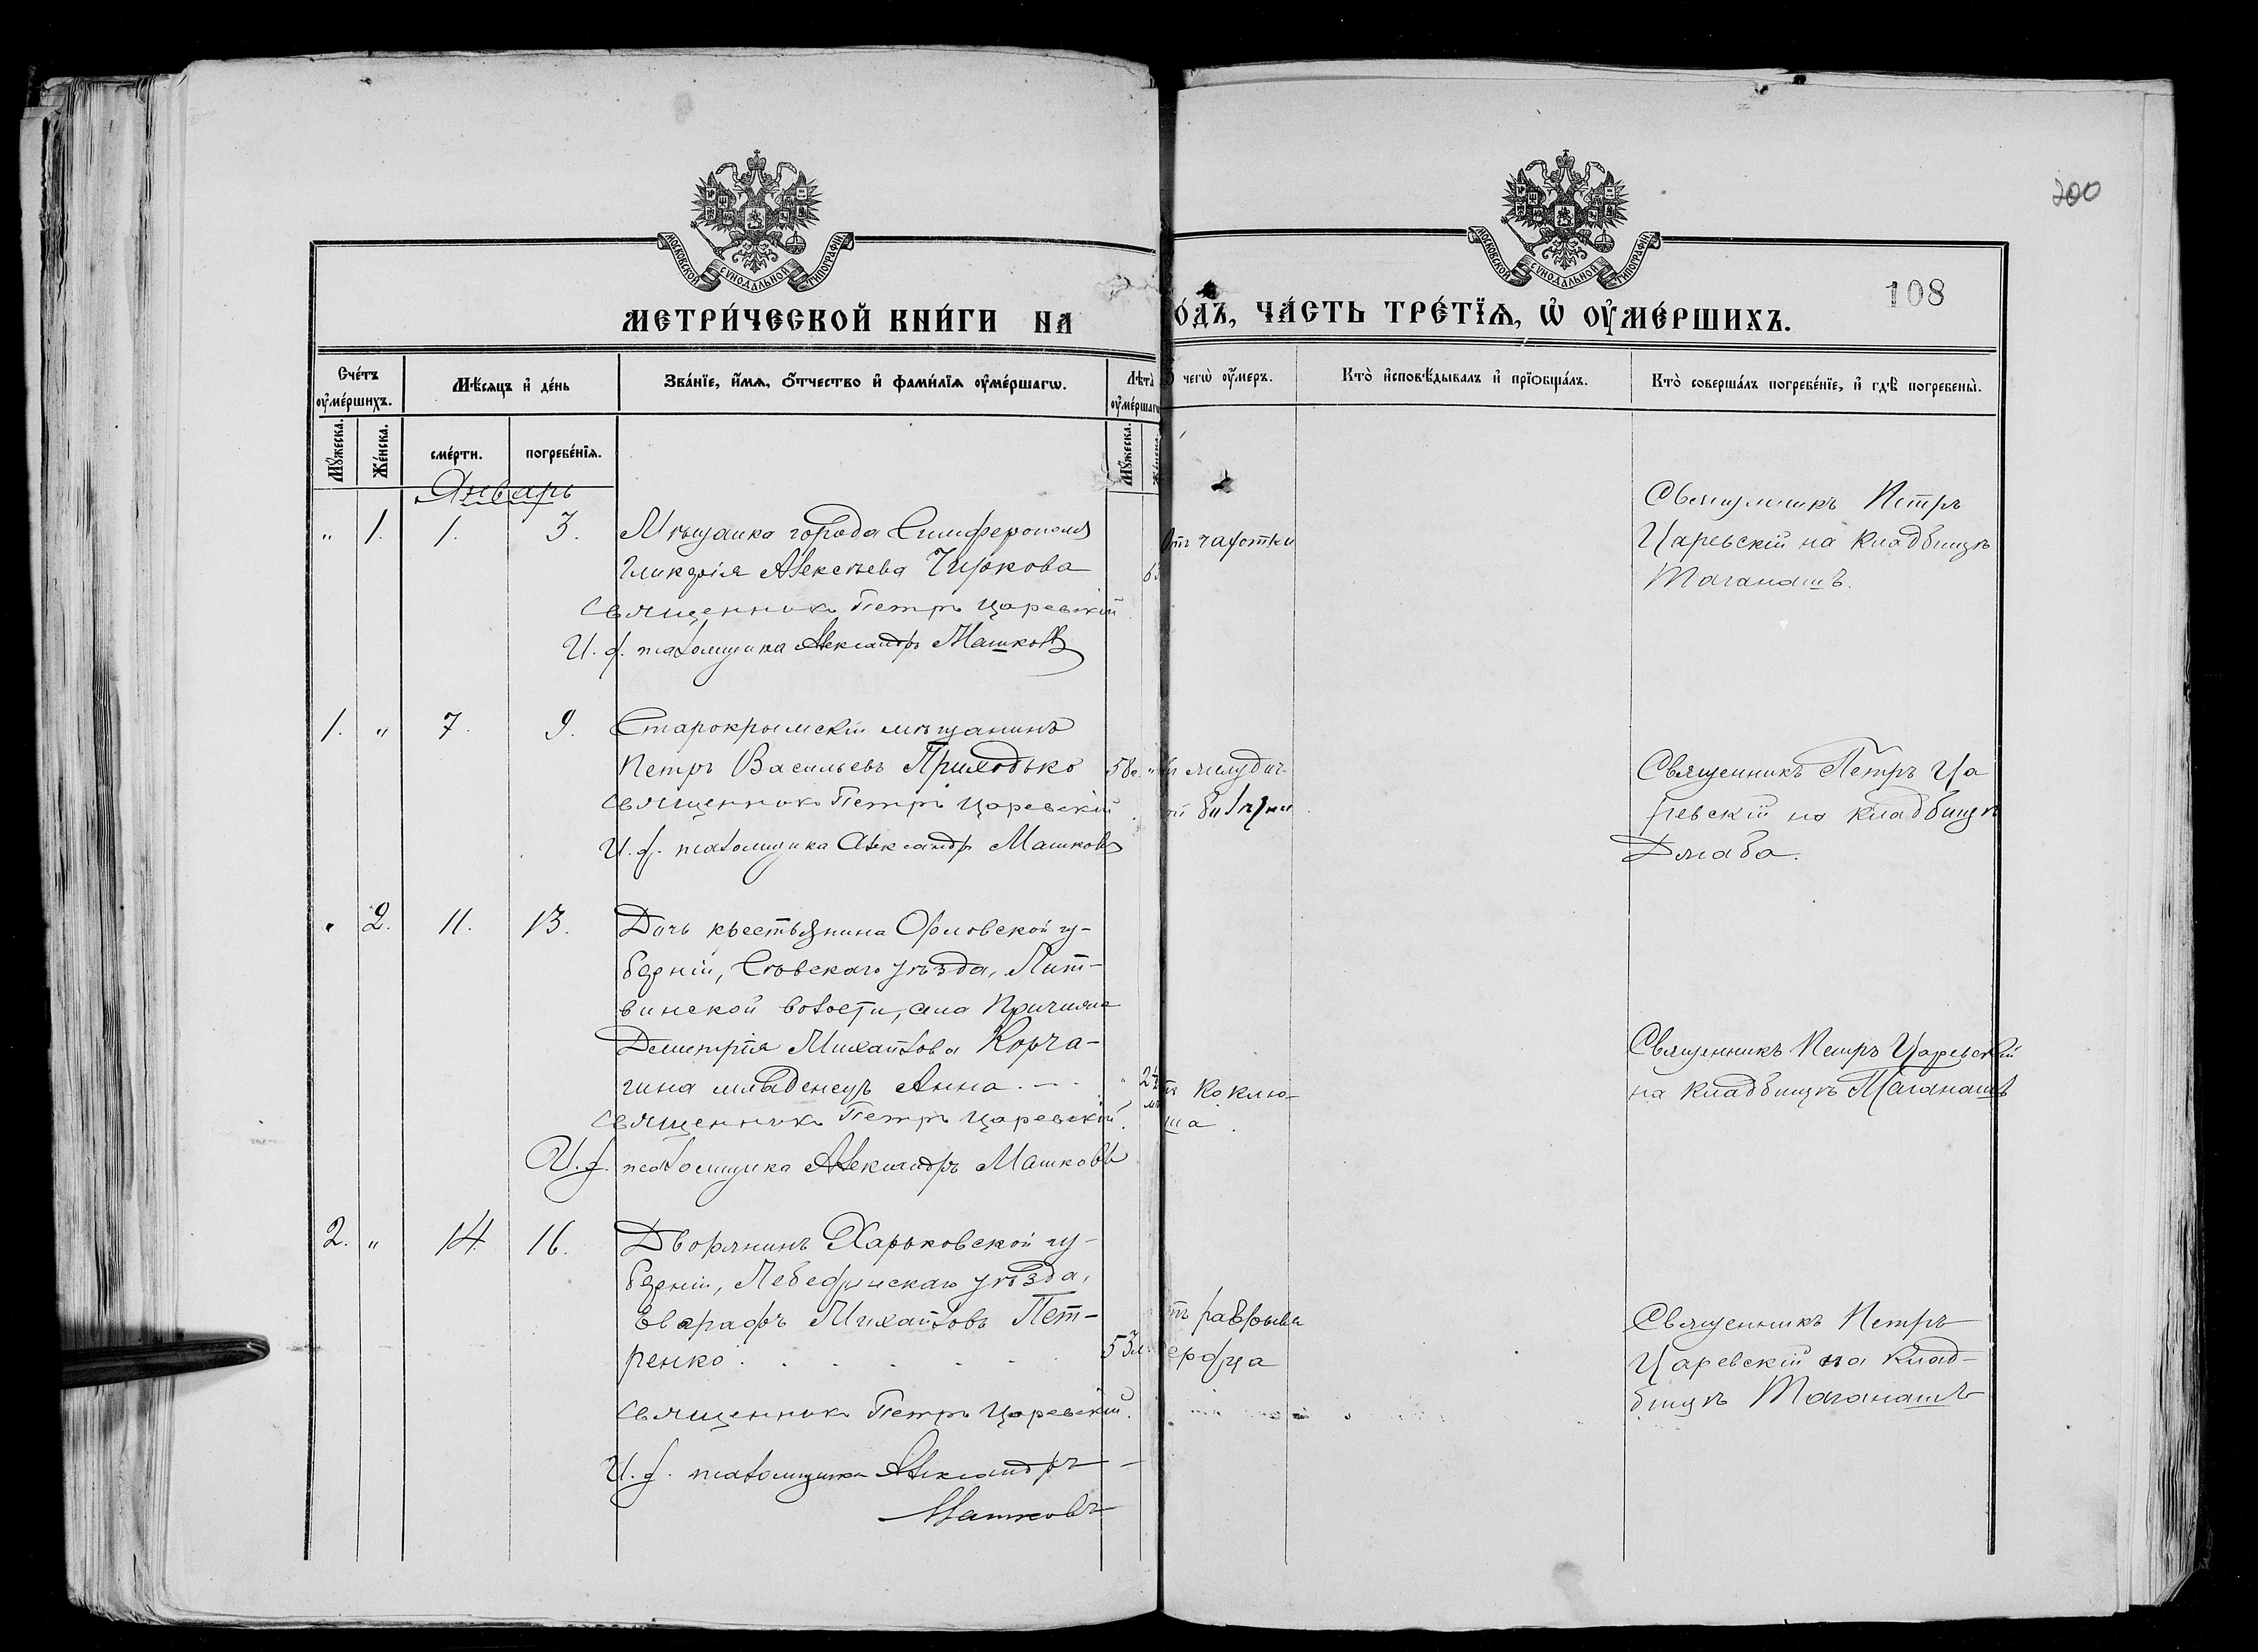 200
МОСКОВСКОЙ СУНОДАЛЬНОЙ ТИПОГРАФІИ
МОСКОВСКОЙ СУНОДАЛЬНОЙ ТИПОГРАФІИ
108
МЕТРИ́ЧЕСКОЙ КНИ́ГИ НА
О́ДЪ, ЧА́СТЬ ТРЕ́ТЇѦ, Ѡ҆ ОУ҆МЕ́РШИХЪ.
Сче́тъ оу҆ме́ршихъ.
Мѣ́сяцъ и҆ де́нь
Зва́нїе, и҆́мѧ, ѻ҆́тчество и҆ фами́лїѧ оу҆ме́ршагѡ.
Лѣта̀ оу҆ме́ршаг
чегѡ̀ оу҆́меръ.
Кто̀ и҆сповѣ́дывалъ и҆ прїѡбща́лъ.
Кто̀ соверша́лъ погребе́нїе, и҆ гдѣ̀ погребены̀.
Му́жеска.
Же́нска.
сме́рти.
погребе́нїѧ.
Му́жеска.
Январь
" 1. 1. 3.
Мѣщанка города Симферополя
Гликерія Алексѣева Чиркова
Священникъ Петръ Царевскій
И. д. псаломщика Александръ Машковъ
6
Отъ чахотки
Священникъ Петръ
Царевскій на кладбищѣ
Таганашъ.
1. " 7. 9.
Старокрымскій мѣщанинъ
Петръ Васильевъ Приходько
58 л. "
Священникъ Петръ Царевскій.
И. д. псаломщика Александръ Машковъ
желудоч-
ой болѣзни
Священникъ Петръ Ца
ревскій на кладбищѣ
" 2. 11. 13.
Дочь крестьянина Орловской гу-
берніи, Сѣвскаго уѣзда, Лит-
винской волости, села
Димитрія Михайлова Корча-
гина младенецъ Анна . - - .
Священникъ Петръ Царевскій.
И. д. псаломщика Александръ Машковъ
" 2½
коклю-
ша.
Священникъ Петръ Царевскій
на кладбищѣ Таганашъ
2. " 14. 16.
Дворянинъ Харьковской гу-
берніи, Лебединскаго уѣзда,
Евграфъ Михайловъ Пет-
ренко . . . . . .
53 л.
Священникъ Петръ Царевскій.
И. д. псаломщика Александръ
Машковъ
тъ разрыва
ердца
Священникъ Петръ
Царевскій на клад-
бищѣ Таганашъ